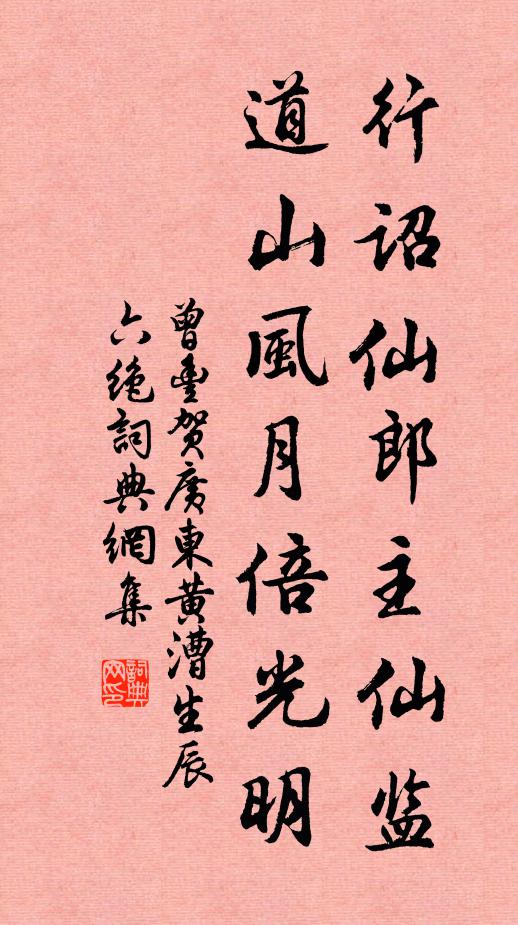 行詔仙郎主仙监
道山風月倍光明
曾豐贺廣東黄漕生辰
六絶詞典網集
詞典网印